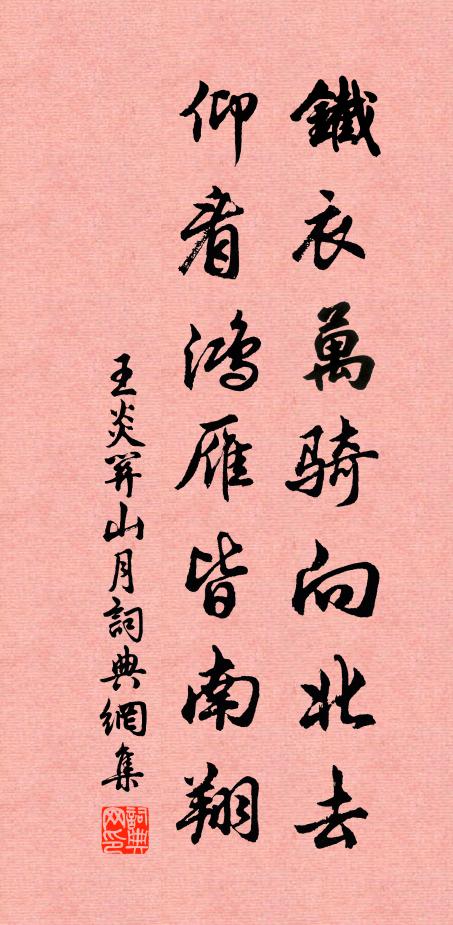 鐵衣萬騎向北去
仰看鴻雁皆南翔
王炎關山月詞典網集
詞典网印